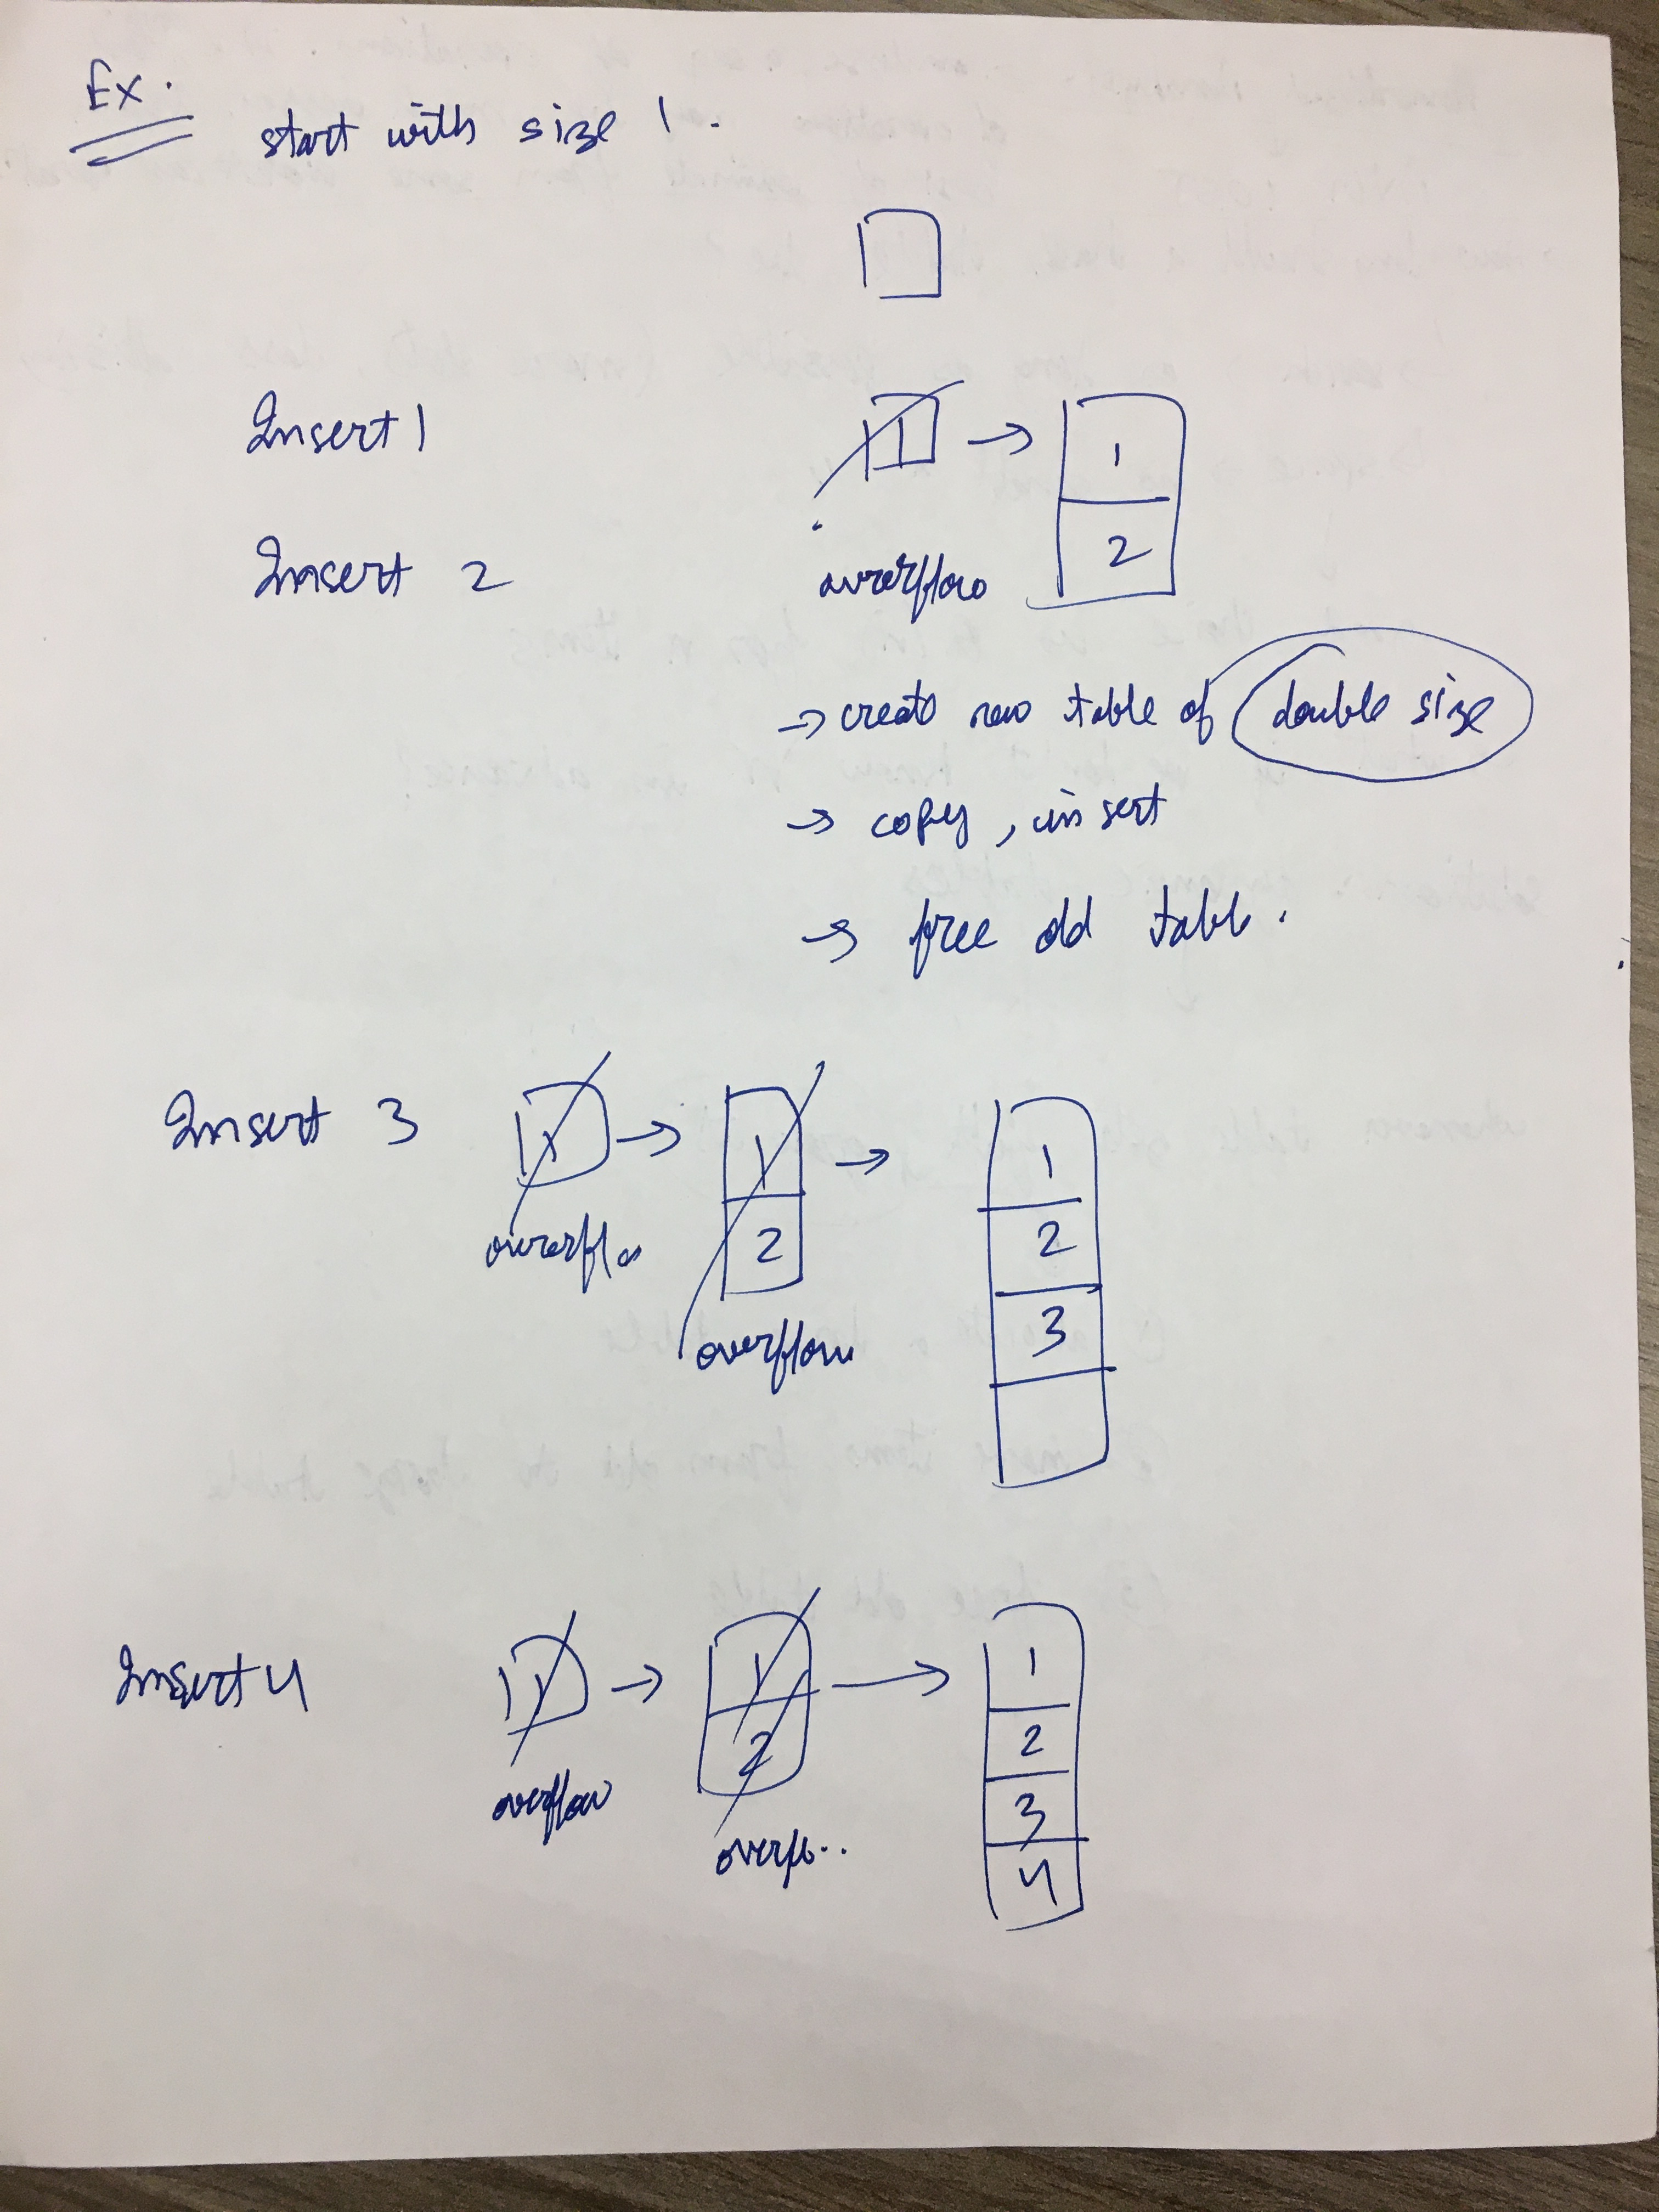 Ex.
start with size 1.
Insert 1
1 → 1
2
Insert 2
overflow
→ create new table of double size
→ copy, insert
→ free old table.
Insert 3
1 → 1 → 1
2 2
3
overflo
overflow
Insert 4
1 → 1 → 1
2 2
3
4
overflow
overflo..